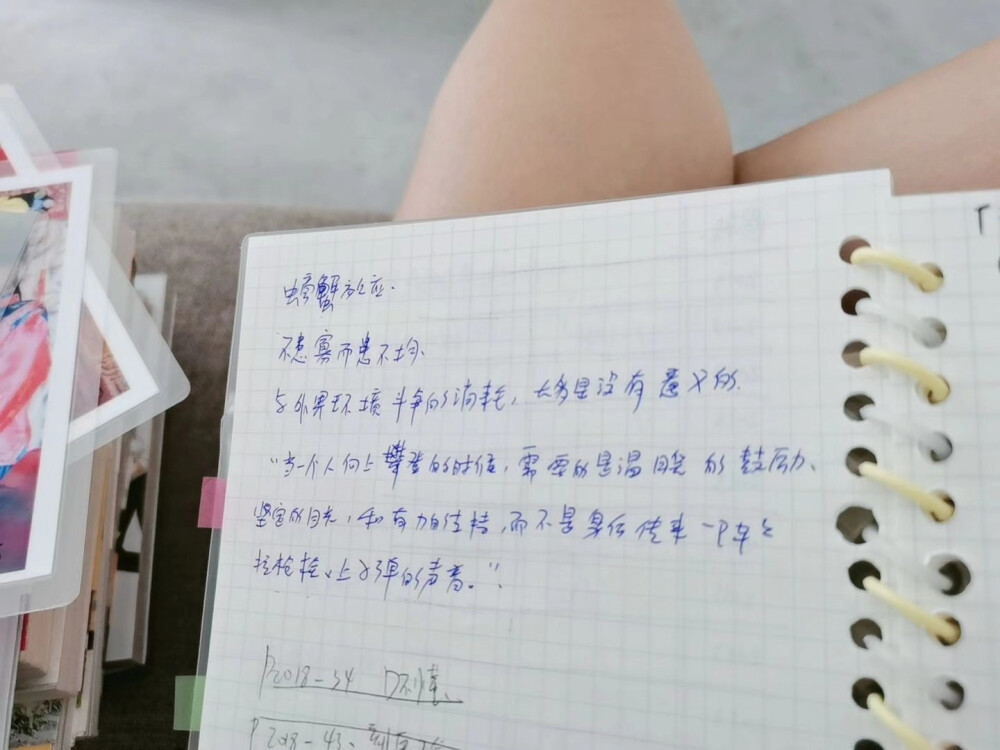 螃蟹效应.
不患寡而患不均.
与外界环境斗争的消耗,大多是没有意义的.
"当一个人向上攀登的时候,需要的是温暖的鼓励、
坚定的目光,和有力的支持,而不是身后传来一阵阵
拉枪栓、上子弹的声音。"
P2018-34
P208-43、